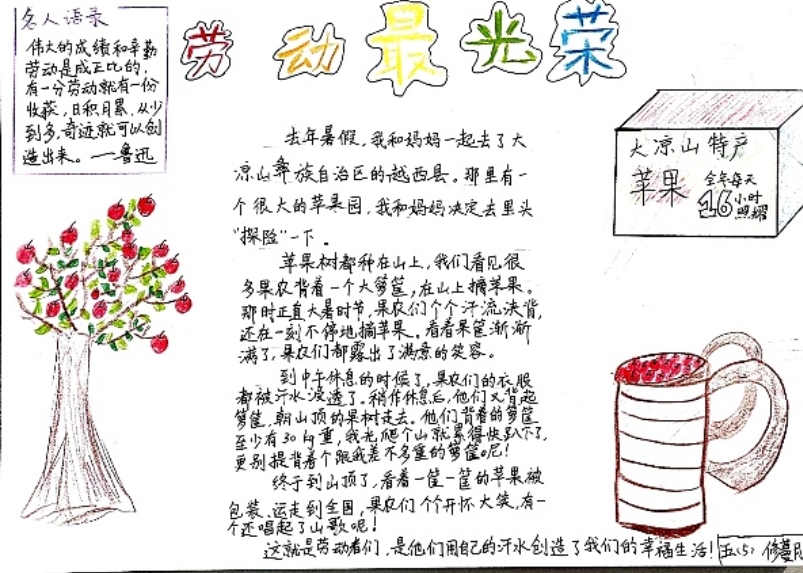 劳动最光荣
名人语录
伟大的成绩和辛勤
劳动是成正比的,
有一分劳动就有一份
收获,日积月累,从少
到多,奇迹就可以创
造出来。——鲁迅
去年暑假,我和妈妈一起去了大
凉山彝族自治区的越西县。那里有一
个很大的苹果园,我和妈妈决定去里头
“探险”一下。
苹果树都种在山上,我们看见很
多果农背着一个大箩筐,在山上摘苹果。
那时正直大暑时节,果农们个个汗流浃背,
还在一刻不停地摘苹果。看着果筐渐渐
满了,果农们都露出了满意的笑容。
到中午休息的时候了,果农们的衣服
都被汗水浸透了。稍作休息后,他们又背起
箩筐,朝山顶的果树走去。他们背着的箩筐
至少有30kg重,我光爬个山就累得快趴下了,
更别提背着个跟我差不多重的箩筐呢!
终于到山顶了,看着一筐一筐的苹果被
包装、运走到全国,果农们个个开怀大笑,有一
个还唱起了山歌呢!
这就是劳动者们,是他们用自己的汗水创造了我们的幸福生活!
大凉山特产
苹果
全年每天
16小时
照耀
五(5) 修蔓